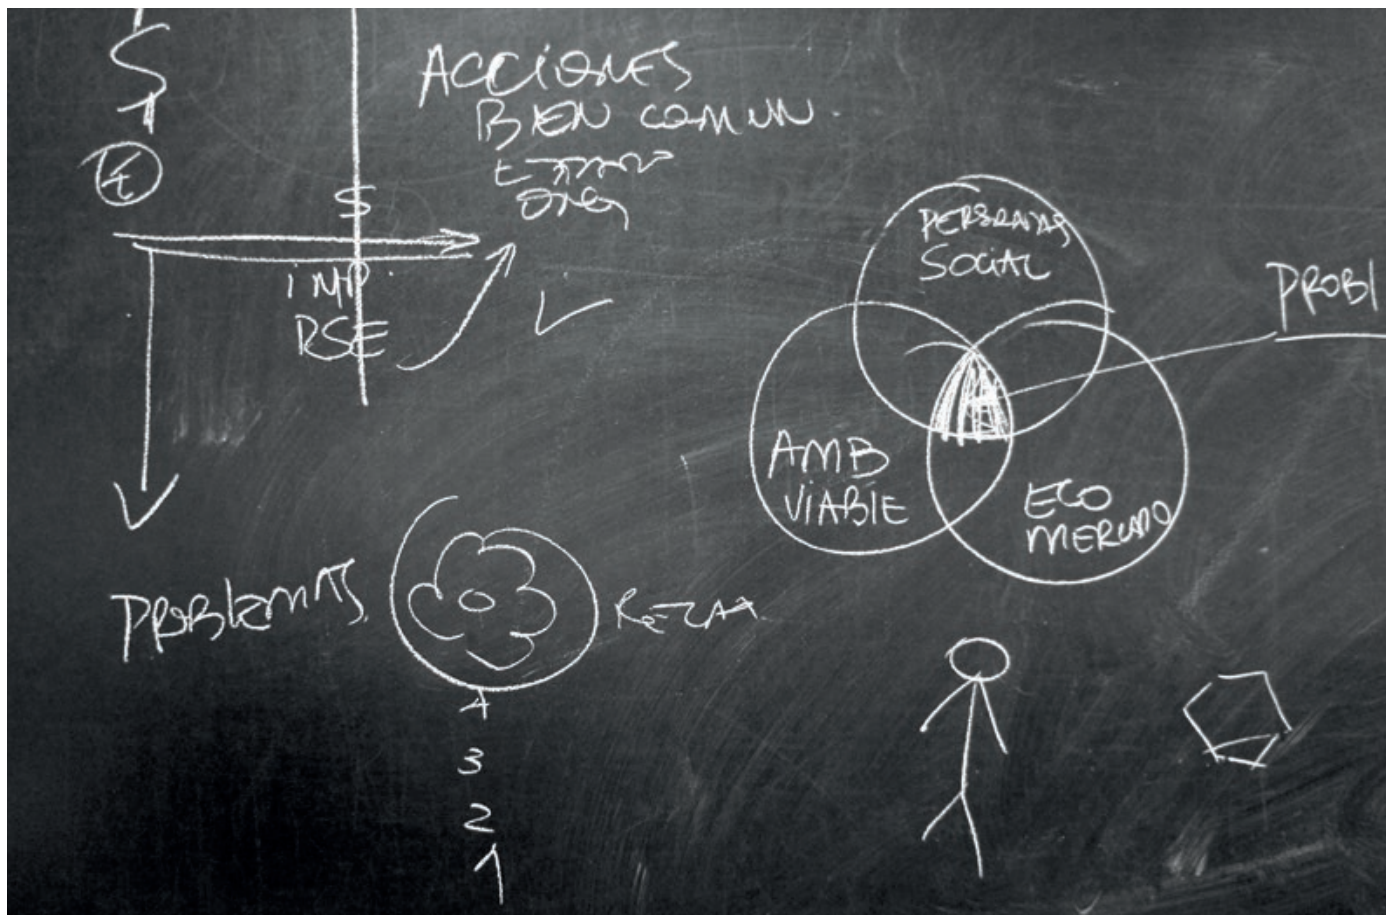 $
ACCIONES
BIEN COMUN
$
IMP.
RSE
PERSONAS
SOCIAL
PROBL
AMB
VIABLE
ECO
MERCADO
PROBLEMAS
4
3
2
1